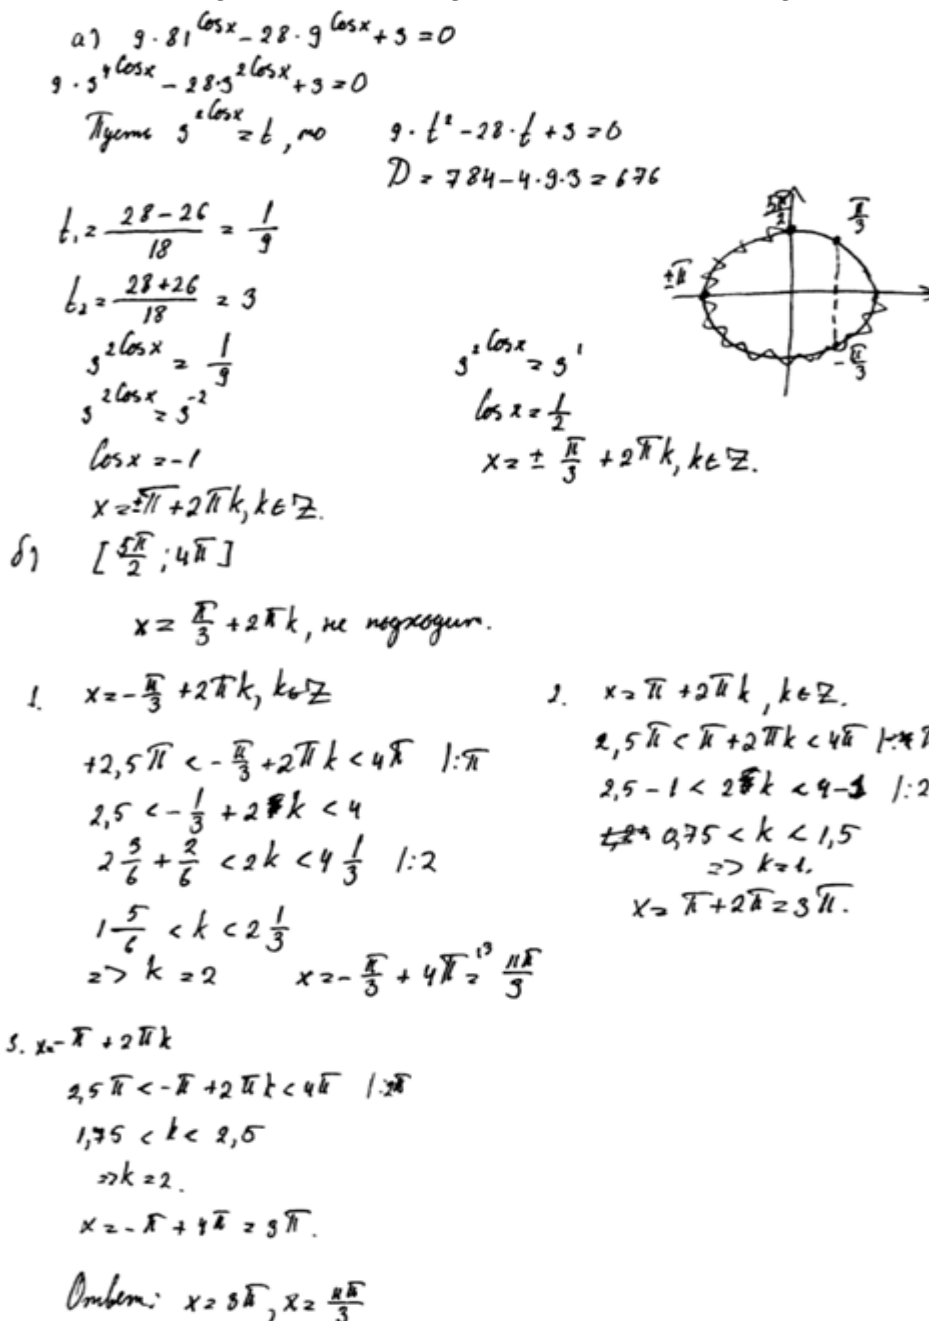 а) 9·81^cosx − 28·9^cosx + 3 = 0
9·3^4cosx − 28·3^2cosx + 3 = 0
Пусть 3^2cosx = t, то 9·t² − 28·t + 3 = 0
D = 784 − 4·9·3 = 676
t₁ = (28 − 26)/18 = 1/9
t₂ = (28 + 26)/18 = 3
5π/2
π/3
±π
−π/3
3^2cosx = 1/9
3^2cosx = 3^−2
cosx = −1
x = ±π + 2πk, k∈Z.
3^2cosx = 3^1
cosx = 1/2
x = ± π/3 + 2πk, k∈Z.
б) [5π/2; 4π]
x = π/3 + 2πk, не подходит.
1. x = −π/3 + 2πk, k∈Z
+2,5π < −π/3 + 2πk < 4π |:π
2,5 < −1/3 + 2k < 4
2 3/6 + 2/6 < 2k < 4 1/3 |:2
1 5/6 < k < 2 1/3
=> k = 2 x = −π/3 + 4π = 11π/3
2. x = π + 2πk, k∈Z.
2,5π < π + 2πk < 4π |: π
2,5 − 1 < 2k < 4 − 1 |:2
0,75 < k < 1,5
=> k = 1.
x = π + 2π = 3π.
3. x = −π + 2πk
2,5π < −π + 2πk < 4π |:2π
1,75 < k < 2,5
=> k = 2.
x = −π + 4π = 3π.
Ответ: x = 3π, x = 11π/3